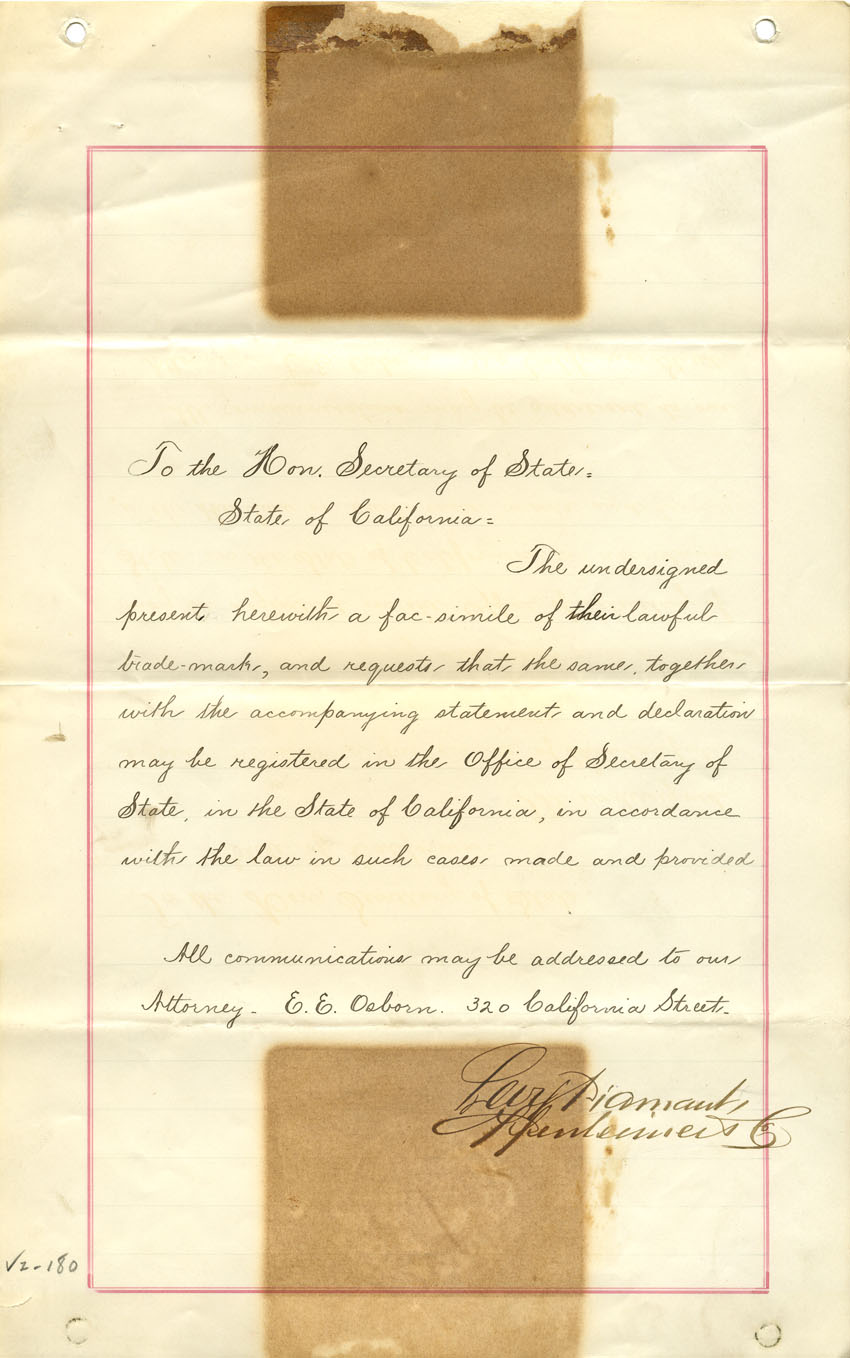 To the Hon. Secretary of State=
State of California=
The undersigned
present herewith a fac-simile of their lawful
trade-mark, and requests that the same, together
with the accompanying statement and declaration
may be registered in the Office of Secretary of
State, in the State of California, in accordance
with the law in such cases made and provided
All communications may be addressed to our
Attorney - E. E. Osborn. 320 California Street-
Levy Diamant
Co
V2-180